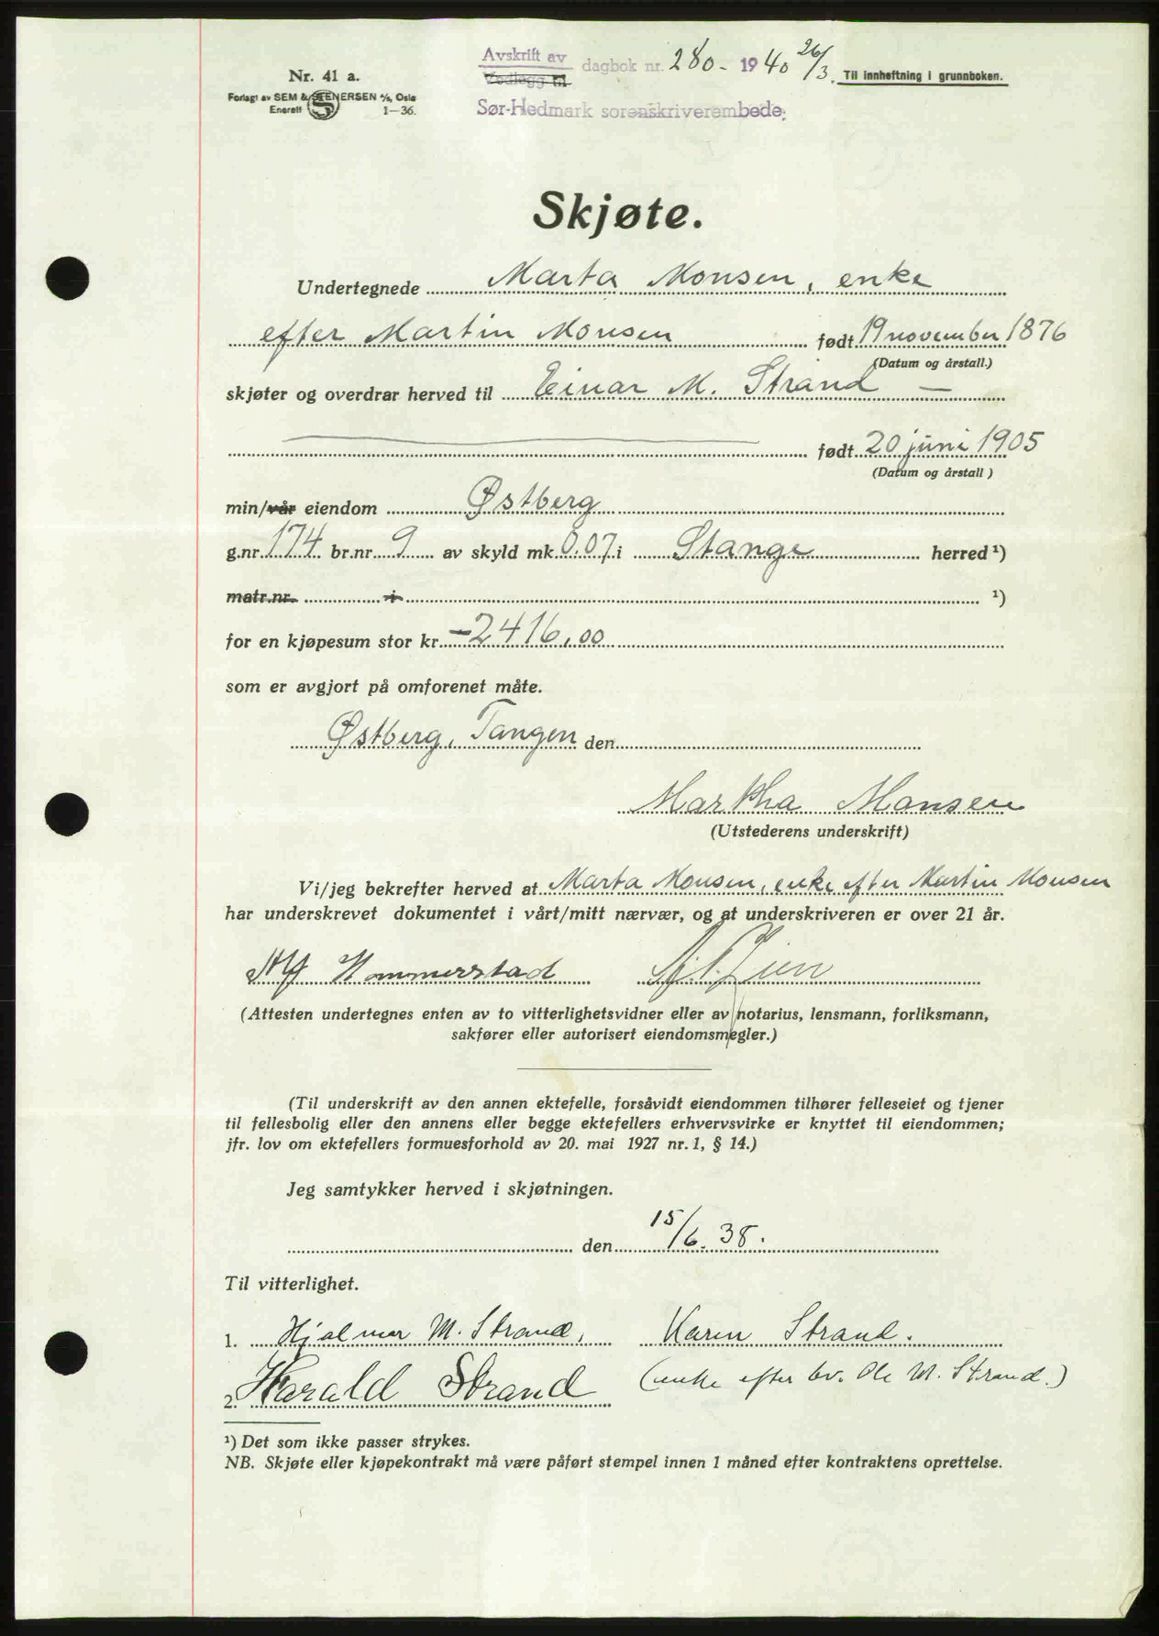 Nr. 41 a.
Forlagt av SEM & STENERSEN A/S, Oslo
Enerett 1—36.
Avskrift av
Vedlegg til
dagbok nr. 280 - 1940 26/3.
Sør-Hedmark sorenskriverembede.
Til innheftning i grunnboken.
Skjøte.
Undertegnede Marta Monsen, enke
efter Martin Monsen født 19 november 1876
(Datum og årstall.)
skjøter og overdrar herved til Einar M. Strand —
født 20 juni 1905
(Datum og årstall)
min/vår eiendom Østberg
g.nr. 174 br.nr. 9 av skyld mk. 0.07 i Stange herred ¹)
matr.nr. i ¹)
for en kjøpesum stor kr. -2416,00
som er avgjort på omforenet måte.
Østberg, Tangen den
Martha Monsen
(Utstederens underskrift)
Vi/jeg bekrefter herved at Marta Monsen, enke efter Martin Monsen
har underskrevet dokumentet i vårt/mitt nærvær, og at underskriveren er over 21 år.
Alf Hommerstad
(Attesten undertegnes enten av to vitterlighetsvidner eller av notarius, lensmann, forliksmann,
sakfører eller autorisert eiendomsmegler.)
(Til underskrift av den annen ektefelle, forsåvidt eiendommen tilhører felleseiet og tjener
til fellesbolig eller den annens eller begge ektefellers erhvervsvirke er knyttet til eiendommen;
jfr. lov om ektefellers formuesforhold av 20. mai 1927 nr. 1, § 14.)
Jeg samtykker herved i skjøtningen.
den 15/6. 38.
Til vitterlighet.
1. Hjalmar M. Strand, Karen Strand.
2. Harald Strand (enke efter bv. Ole M. Strand.)
¹) Det som ikke passer strykes.
NB. Skjøte eller kjøpekontrakt må være påført stempel innen 1 måned efter kontraktens oprettelse.